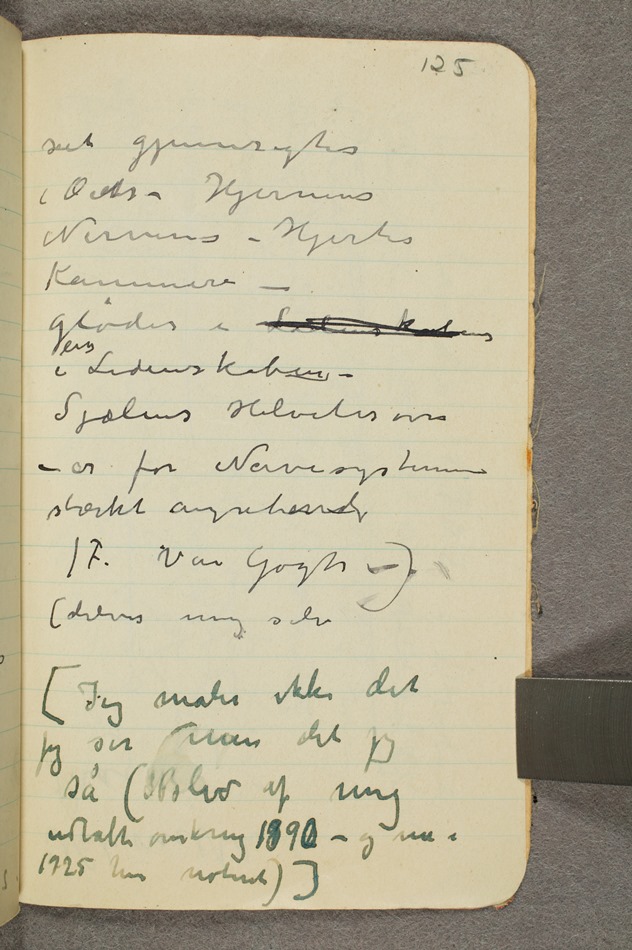 125
set gjennem
i Øiets – Hjernens
Nervens – Hjertes
Kammere –
glødes i Lidenskabens
ens
i Lidenskaben –
Sjælens Helvetesovn
– er for Nervesystemet
stærkt angribende
(F. Van Gogh –)
(delvis mig selv
[Jeg maler ikke det
jeg ser men det jeg
så (Blev af mig
udtalt omkring 1890 – og nu i
1925 her noteret)]